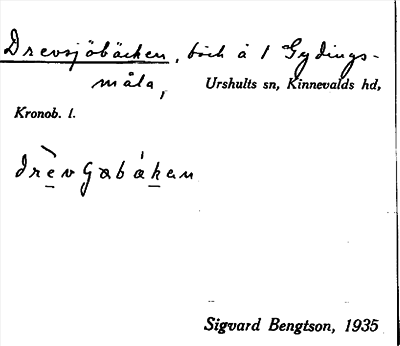 Drevsjöbäcken, bäck å 1 Gydings-
måla, Urshults sn, Kinnevalds hd,
Kronob. l.
drèvGabákan
Sigvard Bengtson, 1935